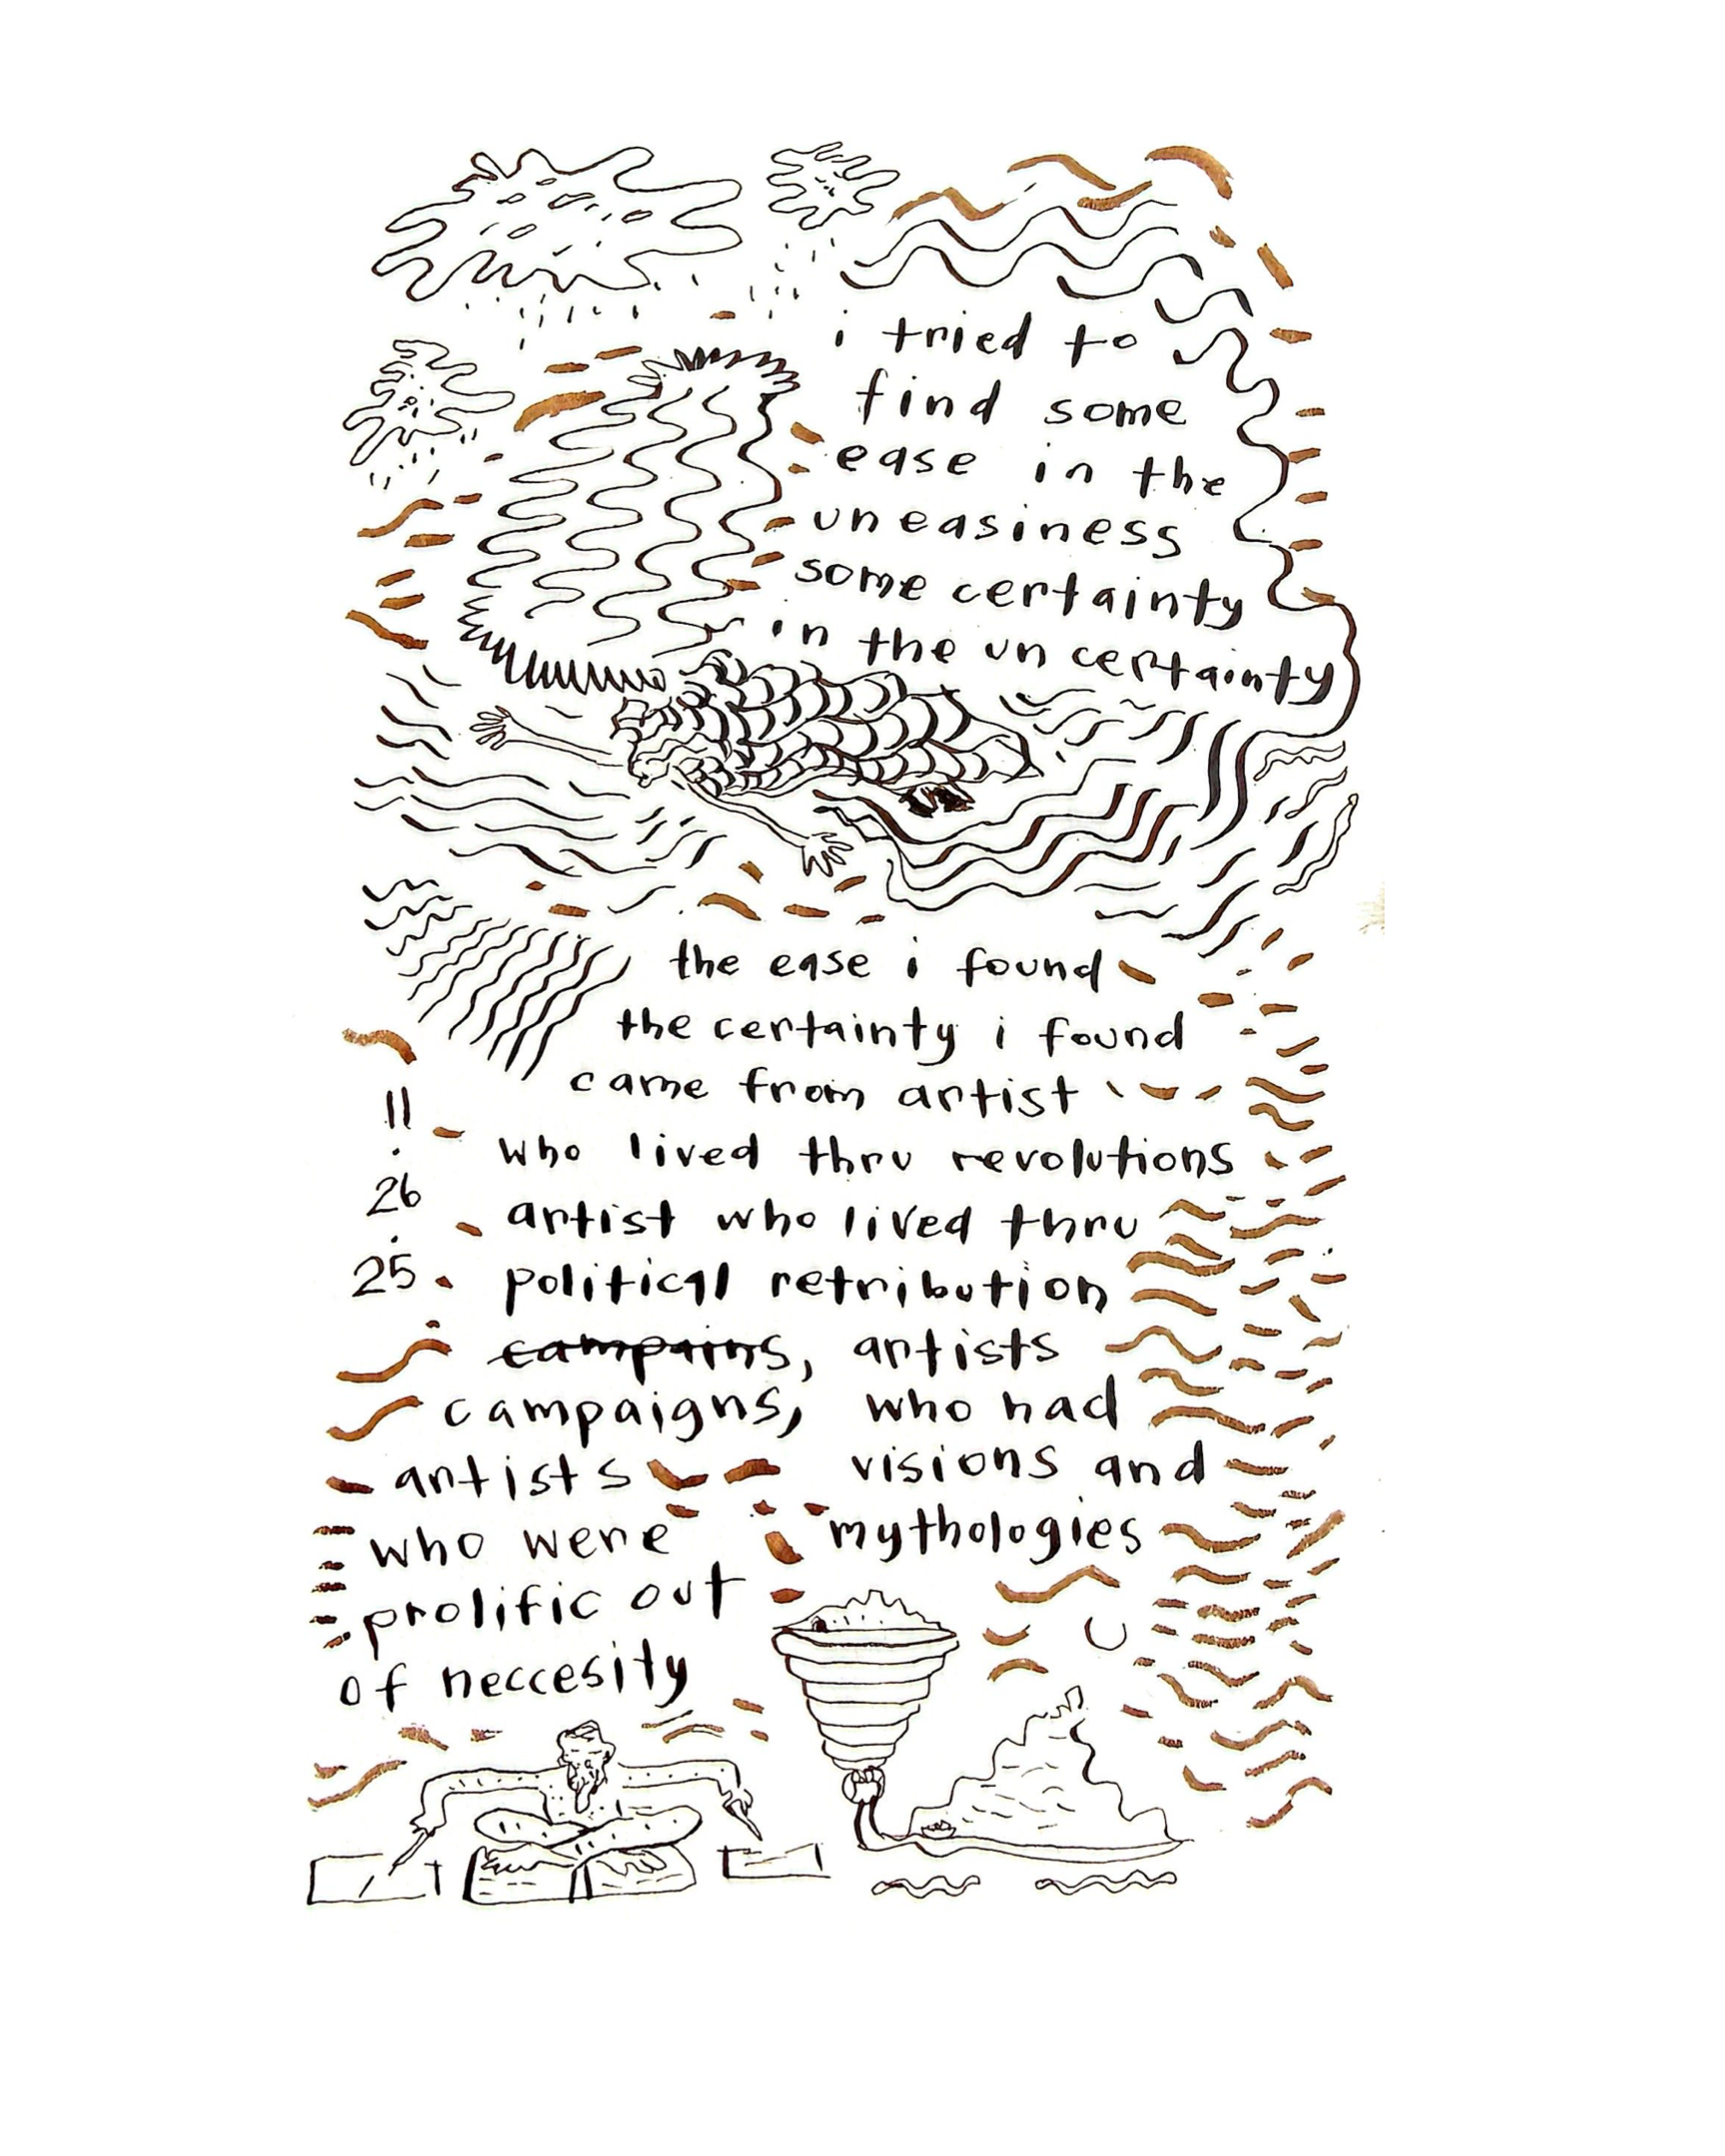 i tried to
find some
ease in the
uneasiness
some certainty
in the un certainty
the ease i found
the certainty i found
came from artist
11
.
26
.
25
who lived thru revolutions
artist who lived thru
political retribution
campains,
campaigns,
artists
who were
prolific out
of neccesity
artists
who had
visions and
mythologies